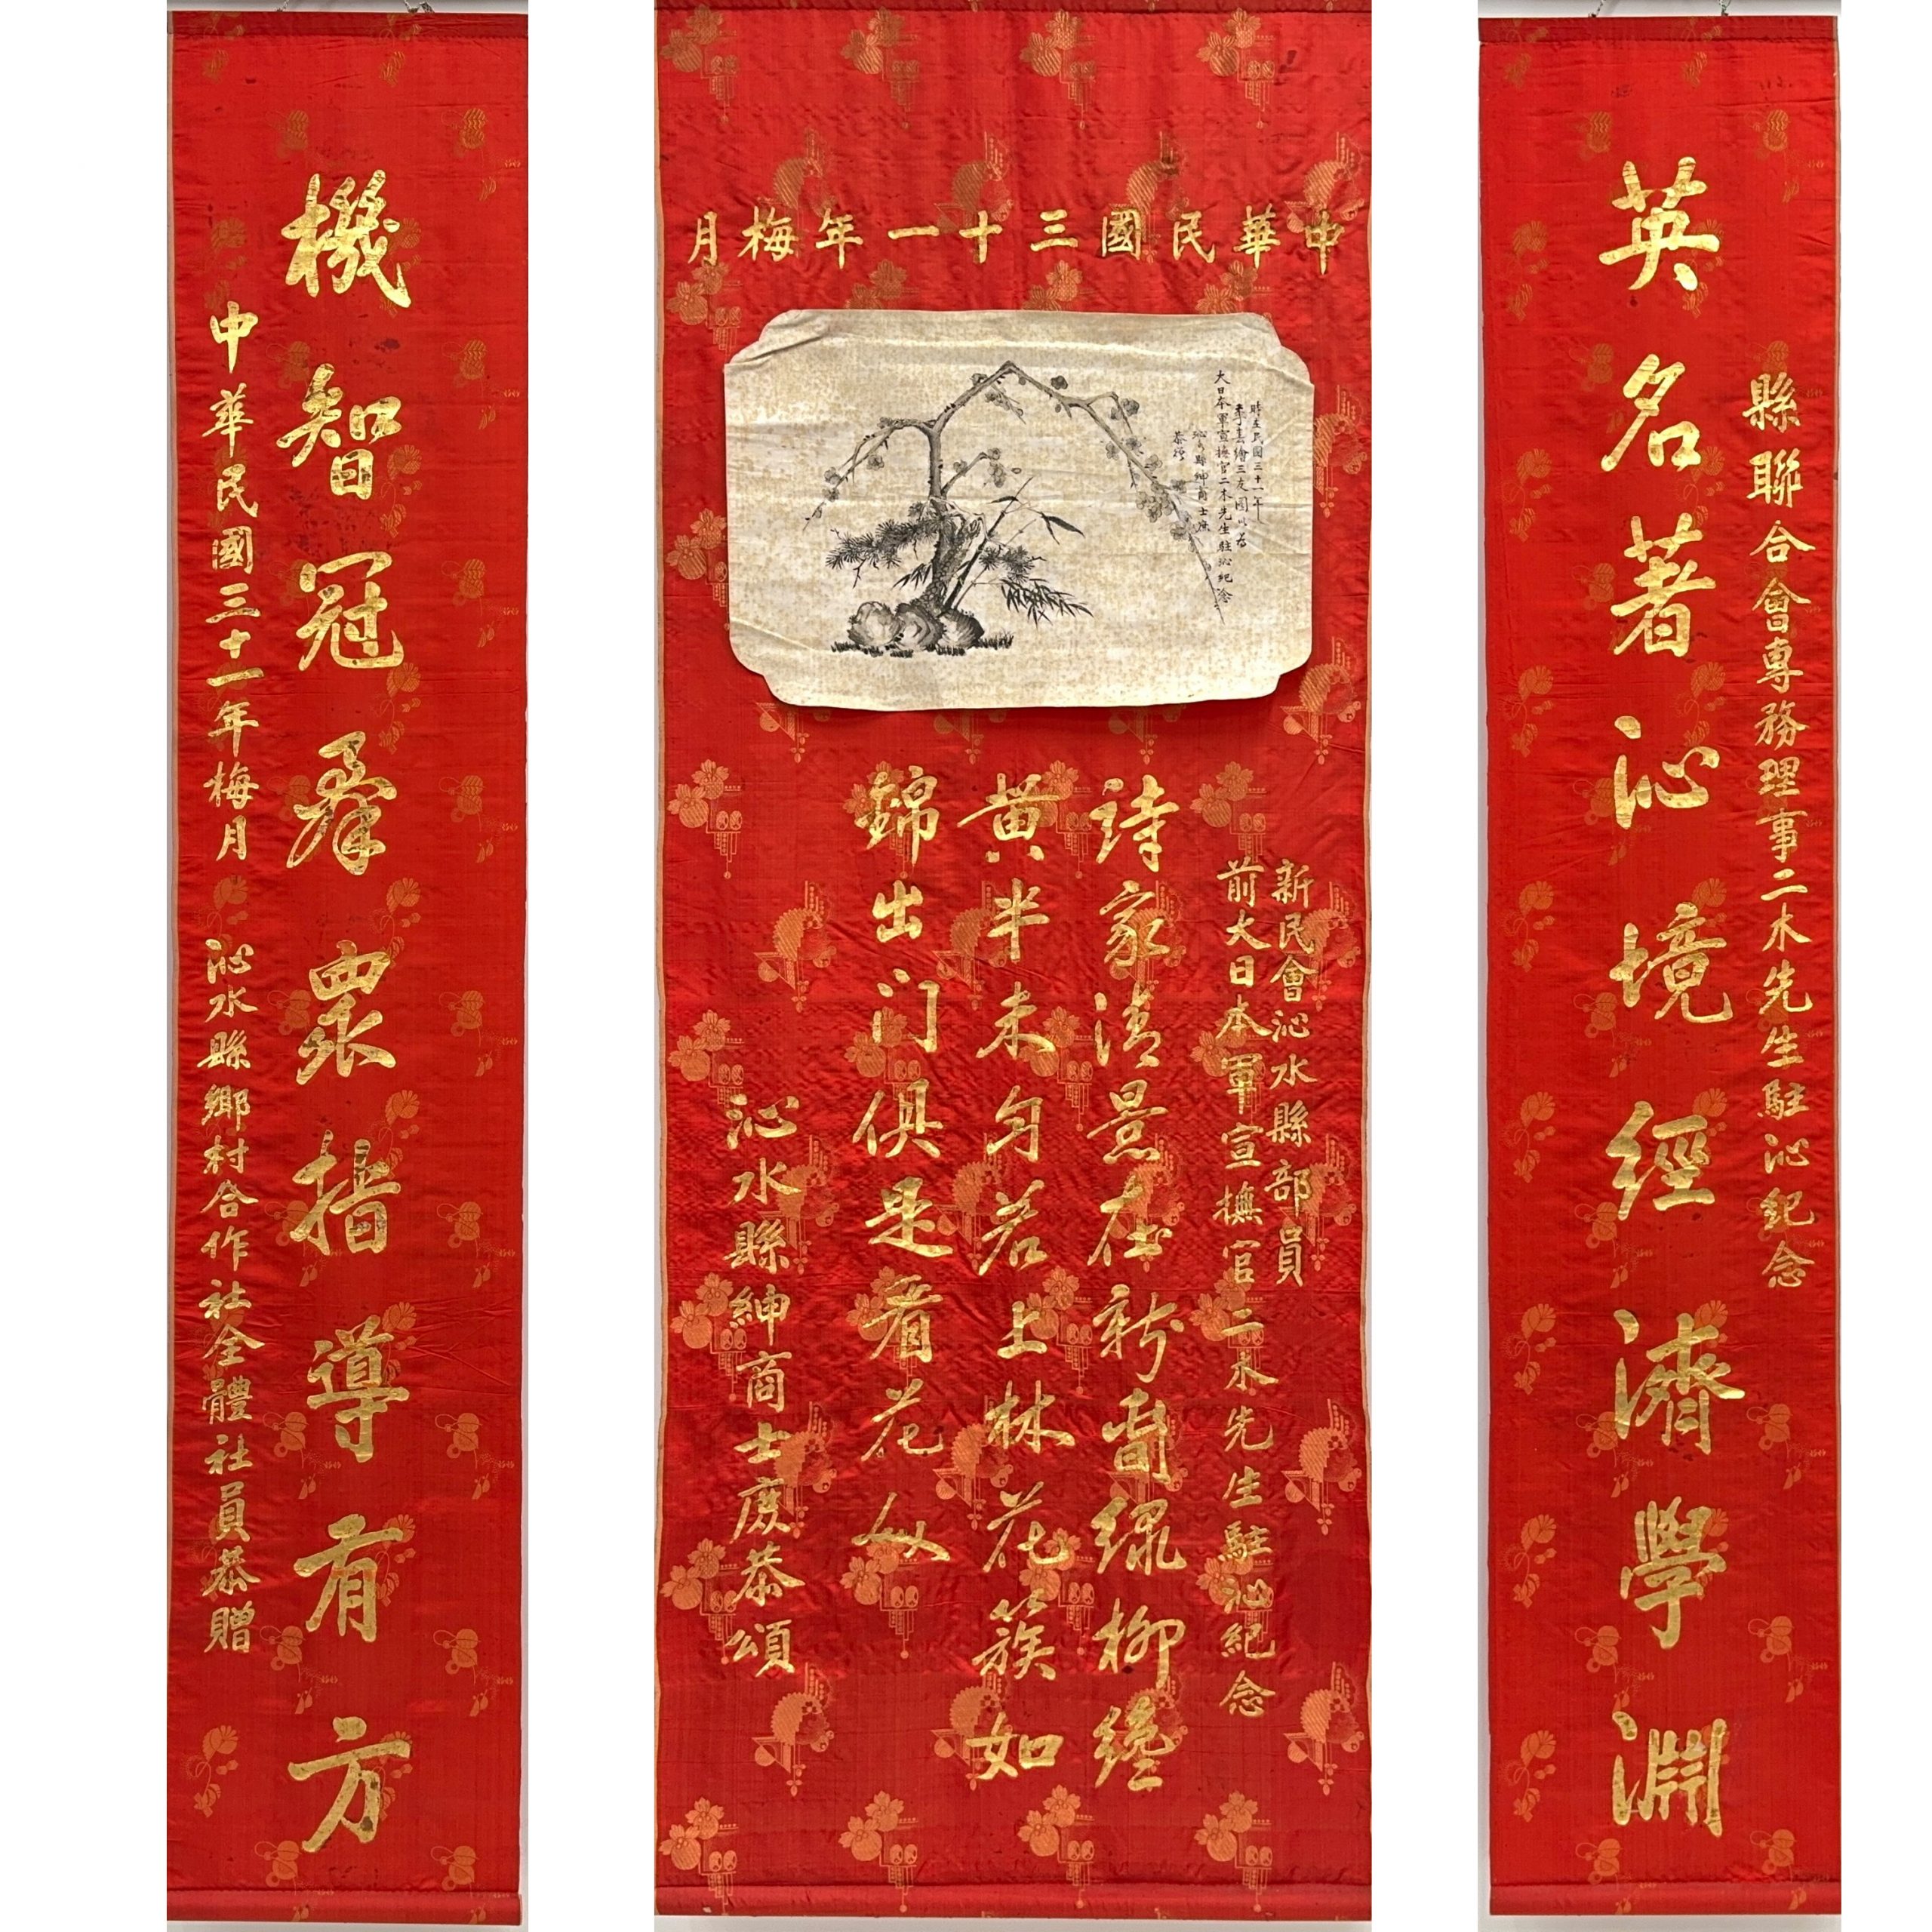 縣聯合會專務理事二木先生駐沁紀念
英名著沁境經濟學淵
中華民國三十一年梅月
時在民國三十一年
季春繪三友圖以為
大日本軍宣撫官二木先生駐沁紀念
沁水縣紳商士庶
恭頌
新民會沁水縣部員
前大日本軍宣撫官二木先生駐沁紀念
詩家清景在新春綠柳纔
黃半未勻若上林花簇如
錦出门俱是看花人
沁水縣紳商士庶恭頌
機智冠羣眾措導有方
中華民國三十一年梅月 沁水縣鄉村合作社全體社員恭贈